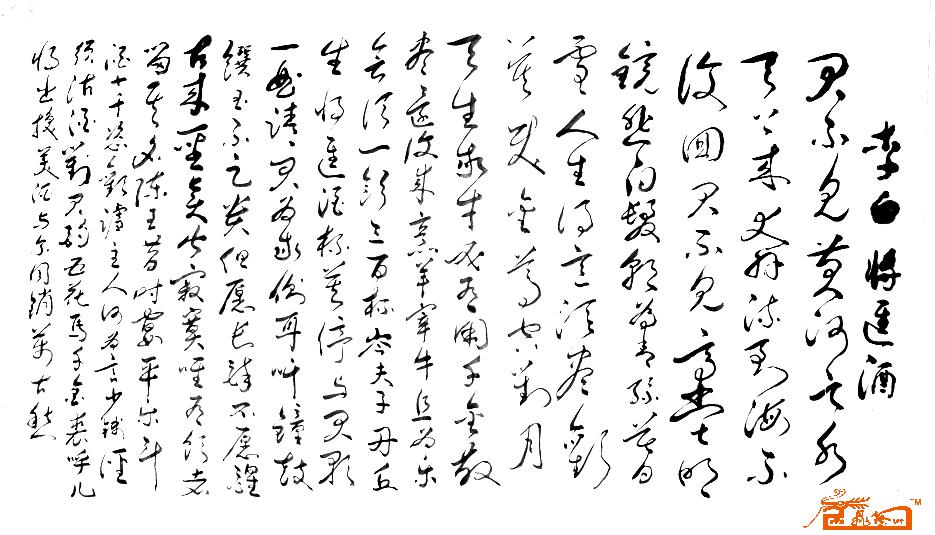 李白 將進酒
君不见黄河之水
天上来奔流到海不
復回君不见高堂明
鏡悲白髮朝如青絲暮成
雪人生得意須盡歡
莫使金尊空對月
天生我才必有用千金散
盡還復来烹羊宰牛且为乐
会須一飲三百杯岑夫子丹丘
生將進酒杯莫停与君歌
一曲請君为我倾耳听鐘鼓
饌玉不足贵但愿长醉不愿醒
古来聖贤皆寂寞唯有饮者
留其名陈王昔时宴平乐斗
酒十千恣歡谑主人何为言少錢径
須沽酒對君酌五花馬千金裘呼儿
將出换美酒与尔同銷萬古愁